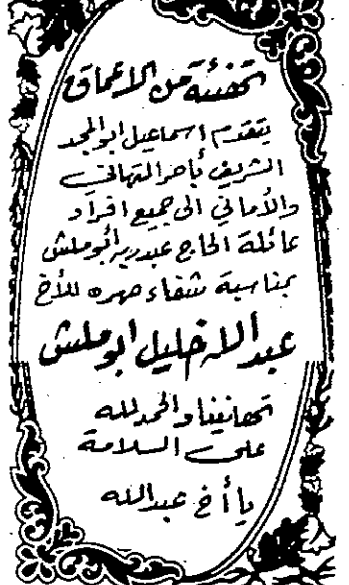 تهنئة من الاعماق
يتقدم اسماعيل ابو المجد
الشريف بأحر التهاني
والأماني الى جميع افراد
عائلة الحاج عبد ربه أبو ملش
بمناسبة شفاء صهره للأخ
عبد الله خليل ابو ملش
تهانينا والحمد لله
على السلامة
يا أخ عبدالله